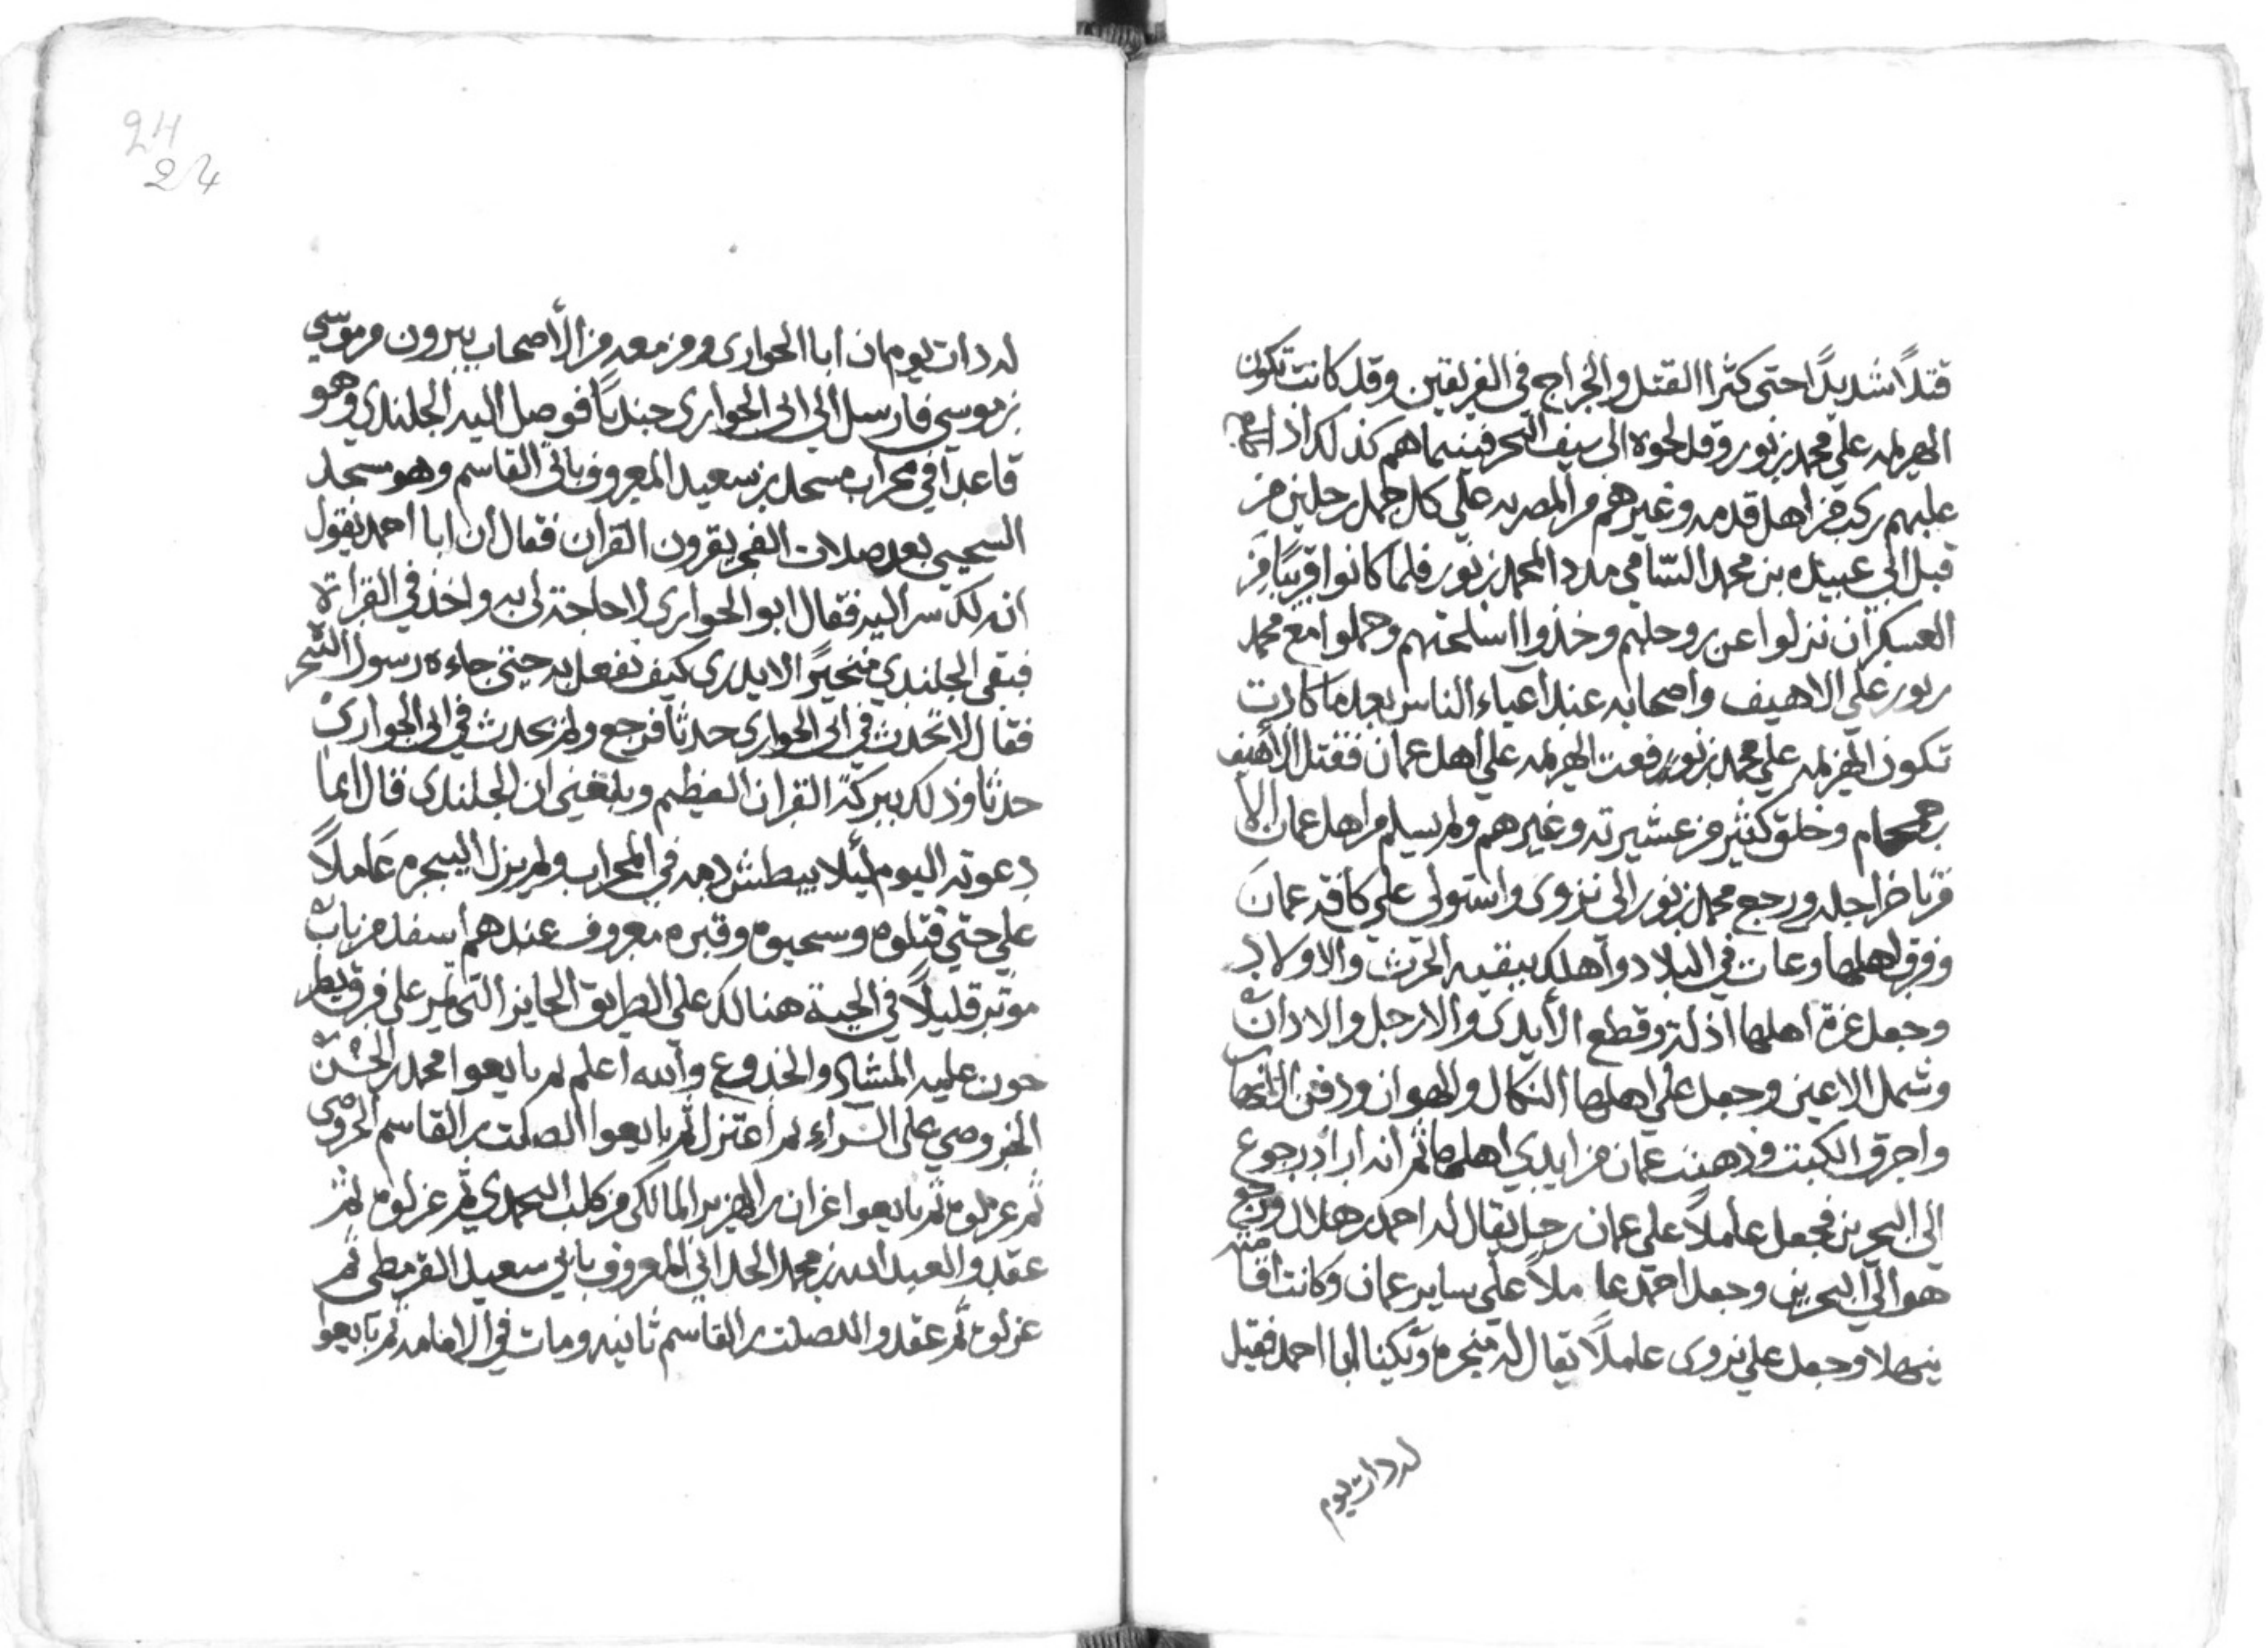 قتلاً شديداً حتى كثرا القتل والجراح في الفريقين وقد كانت تكون
الهزيمه علي محمد بن نور وقد لحوه الى سيف البحر فبينما هم كذلك اذا
عليهم ركب من اهل قدمه وغيرهم من المصريه علي كل جمل رجلين من
قبل ابي عبيده بن محمد السّامي مدد المحمد بن نور فلما كانوا قريبًا من
العسكران نزلوا عن روحلهم وخذوا اسلحتهم وحملوا مع محمد
بن نور علي الاهيف واصحابه عند اعياء الناس بعد ما كادت
تكون الهزيمه علي محمد بن نور فعت الهزيمه علي اهل عمان فقتل الأهيف
بن حمحام وخلق كثير من عشيرته وغيرهم ولم يسلم من اهل عمان الا
من تاخر اجله ورجع محمد بن نور الى نزوى واستولى علي كافة عمان
وفرق اهلها وعاث في البلاد واهلك بقيه الحرث والاولاد
وجعل عزة اهلها اذلة وقطع الأيدى والارجل والاذان
وشمل الاعين وجعل علي اهلها النكال والهوان ودفن الانهار
واحرق الكتب وذهبت عمان من ايدي اهلها ثم انه اراد رجوع
إلى البحرين فجعل عاملاً على عمان رجل يقال له احمد بن هلال ورجع
هو الي البحرين وجعل احمد عاملاً علي ساير عمان وكانت اقامته
ببهلا وجعل علي نزوى عاملاً يقال له بيجره ويكنا ابا احمد فقيل
له ذات يوم
له ذات يوم ان ابا الحوارى ومن معه من الأصحاب يبرون من موسي
بن موسي فارسل الي ابي الحواري جنديًا فوصل اليه الجلندي وهو
قاعدًا في محراب مسجد بن سعيد المعروف بابي القاسم وهو مسجد
السحيبي بعد صلات الفجر يقرون القران فقال ان ابا احمد يقول
انه لك سر اليه فقال ابو الحوارى لا حاجة لي به واخذ في القراة
فبقى الجلندي متحيرًا لا يدري كيف نفعل به حيتى جاءه رسول البيجره
فقال لا تحدث في ابي الحوارى حدثًا فرجع ولم يحدث في ابي الحوارى
حدثا وذلك ببركة القران العظيم وبلغني ان الجلندى قال انما
دعوته اليوم ليئلا يبطش دمه في المحراب ولم يزل البيجره عَاملاً
علي حتي قتلوه وسحبوه وقبره معروف عندهم أسفل من باب
موتبر قليلاً في الجبة هنالك على الطريق الجايز التى تمر على فرق يطر
حون عليه المشاد والجذوع والله اعلم ثم بايعوا محمد بن الحسن
الخروصي على الشراء ثم اعتزل ثم بايعوا الصلت بن القاسم الخروصى
ثم عزلوه ثم بايعوا عزان بن الهزبر المالكى من كلب اليحمدي ثم عزلوه ثم
عقدوا لعبد الله بن محمد الحداني المعروف بابي سعيد القرمطى ثم
عزلوه ثم عقدوا للصلت بن القاسم ثانيه ومات في الامامه ثم بايعوا
24
24